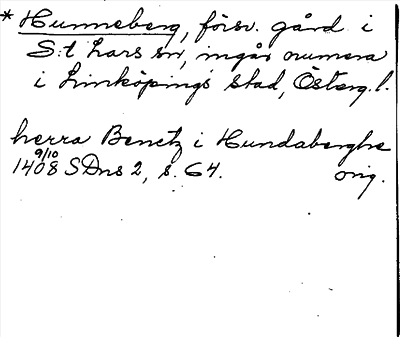 * Hunneberg, försv. gård i
S:t Lars sn, ingår numera
i Linköpings stad, Österg. l.
herra Benetz i Hundaberghe
1408 9/10 SDns 2, s. 64. orig.